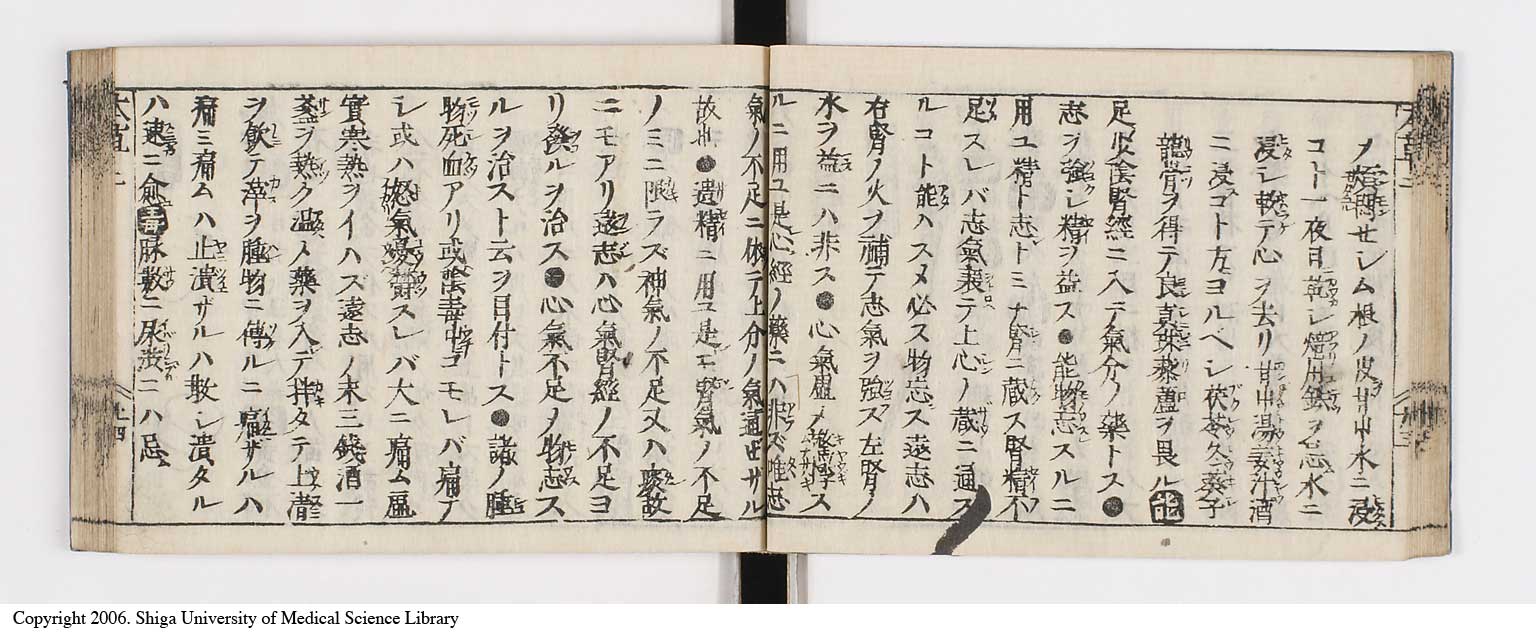 メ煩悶セシム根ノ皮甘草水ニ浸
コト一夜日乾シ焙用鉄ヲ忌水ニ
浸シ軟テ心ヲ去リ甘草湯姜汁酒
ニ浸コト方ヨルヘシ茯苓冬葵子
龍骨ヲ得テ良真珠藜蘆ヲ畏ル能
足少陰腎經ニ入テ氣分ノ藥トス●
志ヲ強シ精ヲ益ス●能物忘スルニ
用ユ精ト志トミナ腎ニ蔵ス腎精不
足スレバ志氣衰テ上心ノ蔵ニ通ス
ルコト能ハスメ必ス物忘ス遠志ハ
右腎ノ火ヲ補テ志氣ヲ強ス左腎ノ
水ヲ益ニハ非ス●心氣虚メ驚悸ス
ルニ用ユ是心經ノ藥ニハ非ズ唯志
氣ノ不足ニ依テ上分ノ氣通せサル
故也●遺精ニ用ユ是モ腎氣ノ不足
ノミニ限ラズ神氣ノ不足又ハ
ニモアリ遠志ハ心氣腎經ノ不足ヨ
リ發ルヲ治ス●心氣不足ノ物忘ス
ルヲ治スト云ヲ目付トス●諸ノ腫
物死血アリ或陰毒中コモレバ痛テ
シ或ハ怒氣憂スレバ大ニ痛ム
實寒熱ヲイハズ遠志ノ末三錢酒一
盞ヲ熱ク温メ藥ヲ入テ拌タテ上澄
ヲ飲テ滓ヲ腫物ニ傅ルニ痛ザルハ
痛ミ痛ムハ止潰ザルハ散シ潰タル
ハ速ニ愈毒脉數ニ尿澁ニハ忌